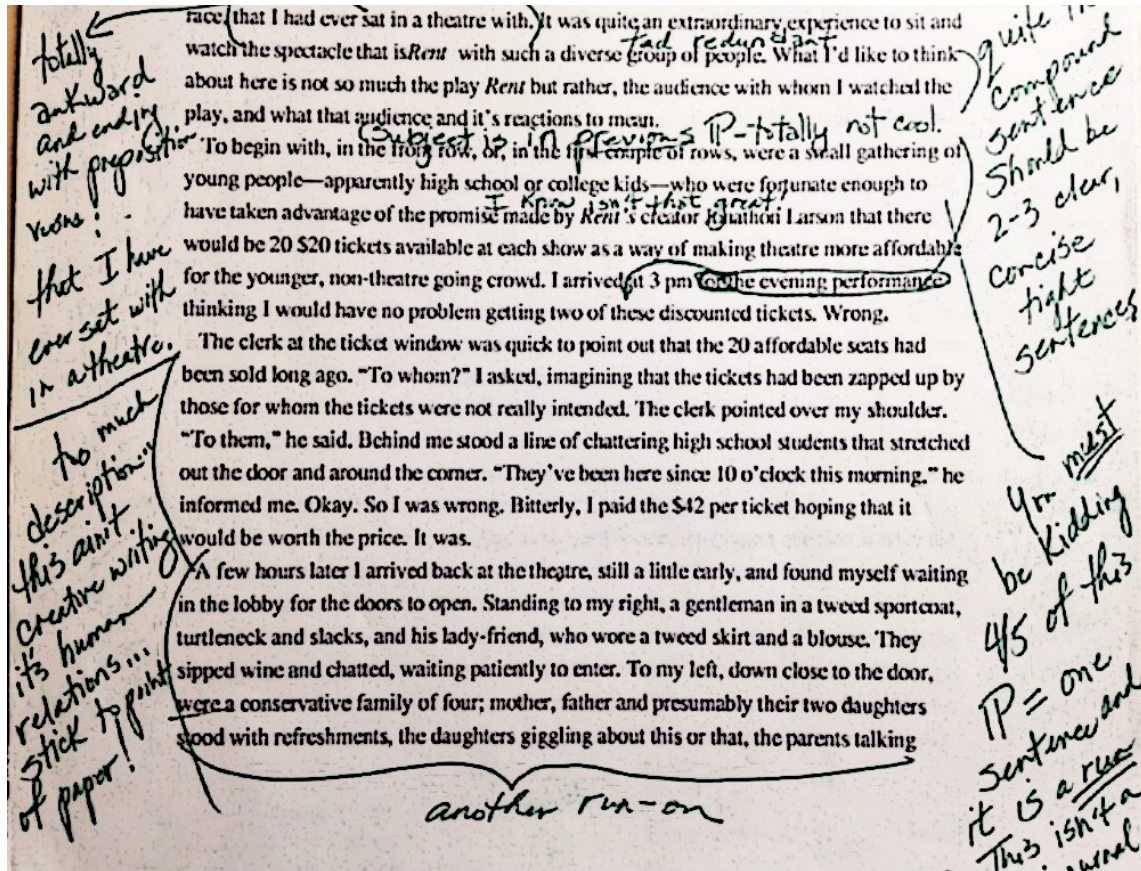 race, (that I had ever sat in a theatre with.) It was quite an extraordinary experience to sit and
tad redundant
watch the spectacle that isRent with such a diverse group of people. What I'd like to think
about here is not so much the play Rent but rather, the audience with whom I watched the
play, and what that audience and it's reactions to mean.
(Subject is in previous ¶-totally not cool.
To begin with, in the front row, or, in the first couple of rows, were a small gathering of
young people—apparently high school or college kids—who were fortunate enough to
I know isn't that great!
have taken advantage of the promise made by Rent's creator Jonathon Larson that there
would be 20 $20 tickets available at each show as a way of making theatre more affordable
for the younger, non-theatre going crowd. I arrived at 3 pm for the evening performance
thinking I would have no problem getting two of these discounted tickets. Wrong.
The clerk at the ticket window was quick to point out that the 20 affordable seats had
been sold long ago. "To whom?" I asked, imagining that the tickets had been zapped up by
those for whom the tickets were not really intended. The clerk pointed over my shoulder.
"To them," he said. Behind me stood a line of chattering high school students that stretched
out the door and around the corner. "They've been here since 10 o'clock this morning." he
informed me. Okay. So I was wrong. Bitterly, I paid the $42 per ticket hoping that it
would be worth the price. It was.
A few hours later I arrived back at the theatre, still a little early, and found myself waiting
in the lobby for the doors to open. Standing to my right, a gentleman in a tweed sportcoat,
turtleneck and slacks, and his lady-friend, who wore a tweed skirt and a blouse. They
sipped wine and chatted, waiting patiently to enter. To my left, down close to the door,
were a conservative family of four; mother, father and presumably their two daughters
stood with refreshments, the daughters giggling about this or that, the parents talking
another run-on
totally
awkward
and ending
with preposition
that I have
ever set with
in a theatre.
too much
description...
this ain't
creative writing
it's human
relations...
stick to point
of paper!
quite
compound
sentence
Should be
2-3 clear,
concise
tight
sentences
You must
be kidding
4/5 of this
¶ = one
sentence and
it is a run
This isn't a